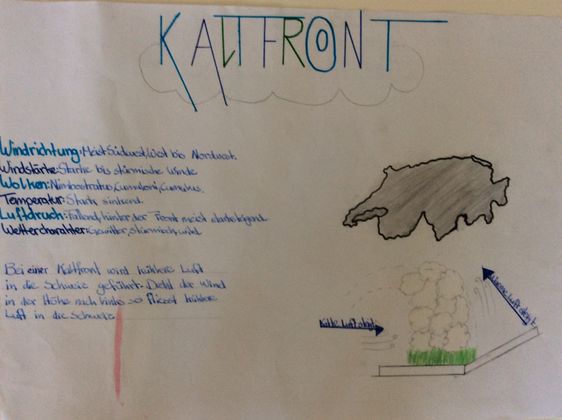 KALTFRONT
Windrichtung: Meist Südwest/West bis Nordwest.
Windstärke: Starke bis stürmische Winde
Wolken: Nimbostratus, Cumuloni, Cumulus.
Temperatur: Stark sinkend.
Luftdruck: Fallend, hinter der Front meist
Wettercharakter: Gewitter, stürmisch, wild.
Bei einer Kaltfront wird kühlere Luft
in die Schweiz geführt. Dreht der Wind
in der Höhe nach links so fliesst kühlere
Luft in die Schweiz.
Kalte Luft
Warme Luft steigt